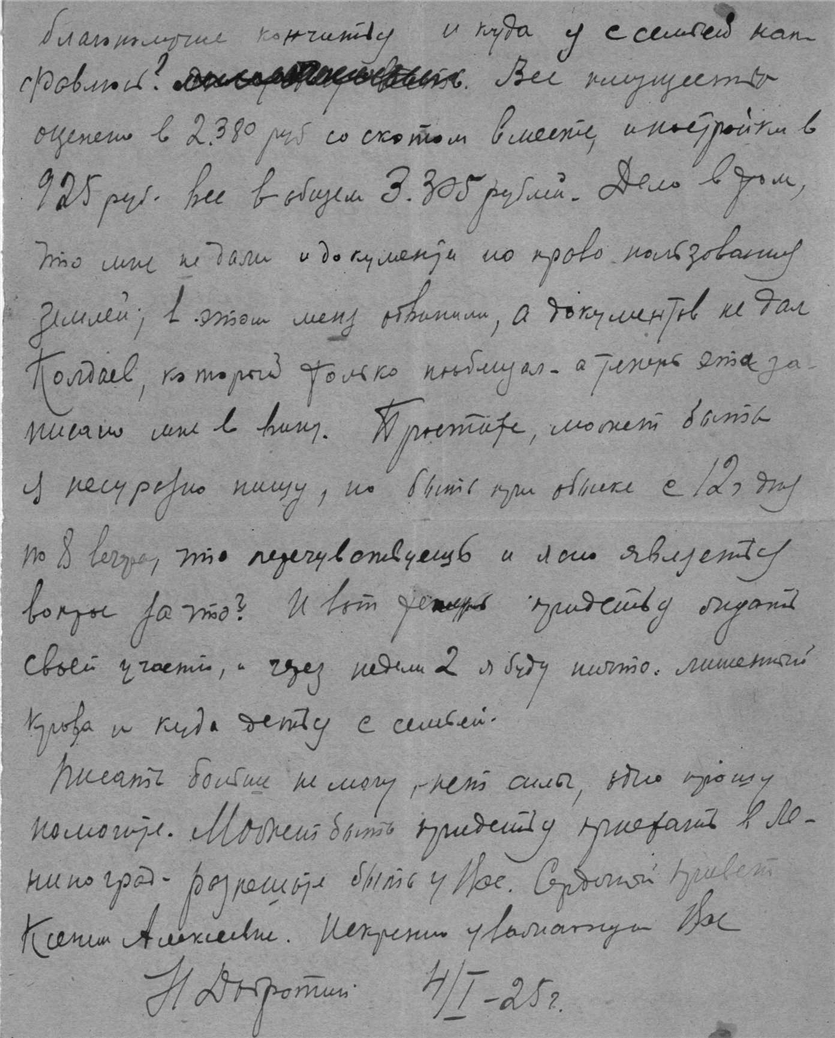 благополучие кончится и куда я с семьей нап-
равлюсь? Все имущество
оценено в 2.380 руб со скотом вместе, и постройки в
925 руб. все в общем 3.305 рублей. Дело в том,
что мне не дали и документа на право пользования
землей; в этом меня обвинили, а документов не дал
Колдаев, который только пообещал - а теперь это за-
писано мне в вину. Простите, может быть
я несуразно пишу, но быть при обыске с 12 ч дня
по 8 вечера, это перечувствуешь и ясно является
вопрос за что? И вот теперь придется ожидать
своей участи, и через недели 2 я буду ничто. лишенный
крова и куда деться с семьей.
Писать больше не могу, нет силы, одно прошу
помогите. Может быть придется приехать в Ле-
нинград - разрешите быть у Вас. Сердечный привет
Ксении Алексеевне. Искренно уважающий Вас
Н Добротин 4/I - 25 г.